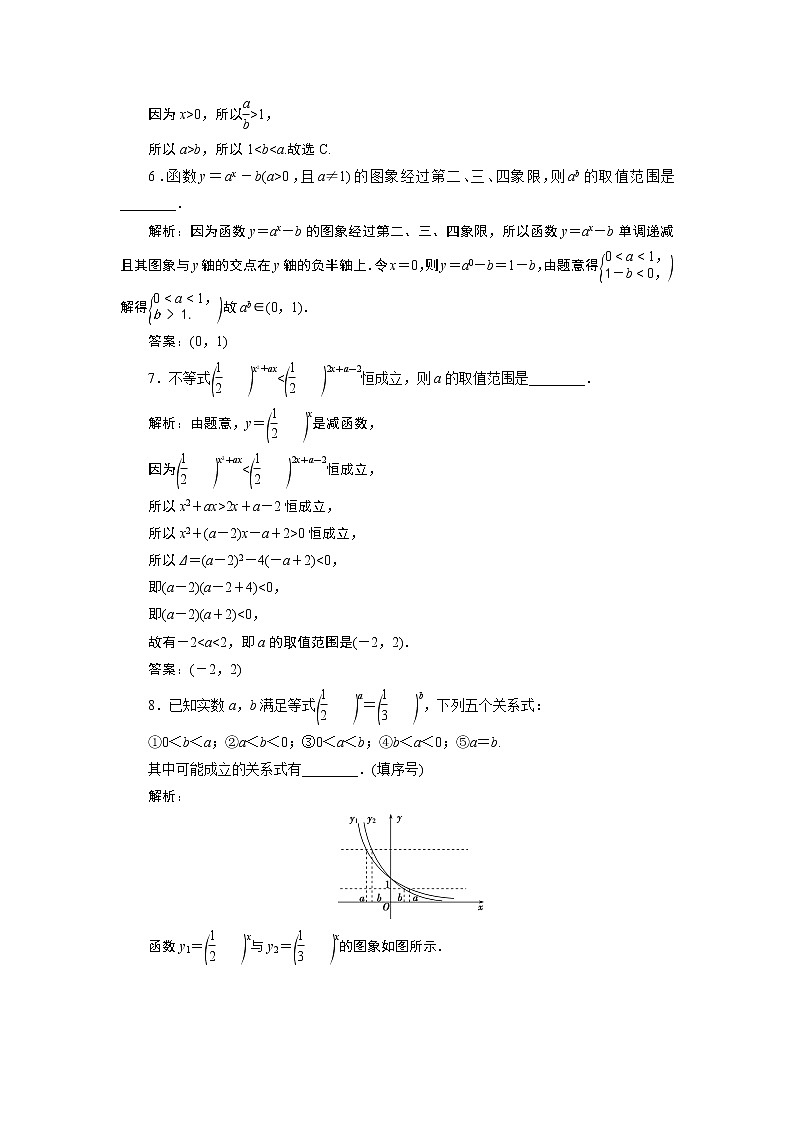 因为 x>0，所以a/b>1，
所以 a>b，所以 1<b<a.故选 C.
6.函数 y＝aˣ－b(a>0，且 a≠1)的图象经过第二、三、四象限，则 aᵇ 的取值范围是
________．
解析：因为函数 y＝aˣ－b 的图象经过第二、三、四象限，所以函数 y＝aˣ－b 单调递减
且其图象与 y 轴的交点在 y 轴的负半轴上.令 x＝0，则 y＝a⁰－b＝1－b，由题意得{0＜a＜1，1－b＜0，)
解得{0＜a＜1，b＞1.)故 aᵇ∈(0，1)．
答案：(0，1)
7．不等式(1/2)^(x²＋ax)<(1/2)^(2x＋a－2)恒成立，则 a 的取值范围是________．
解析：由题意，y＝(1/2)ˣ是减函数，
因为(1/2)^(x²＋ax)<(1/2)^(2x＋a－2)恒成立，
所以 x²＋ax>2x＋a－2 恒成立，
所以 x²＋(a－2)x－a＋2>0 恒成立，
所以 Δ＝(a－2)²－4(－a＋2)<0，
即(a－2)(a－2＋4)<0，
即(a－2)(a＋2)<0，
故有－2<a<2，即 a 的取值范围是(－2，2)．
答案：(－2，2)
8．已知实数 a，b 满足等式(1/2)ᵃ＝(1/3)ᵇ，下列五个关系式：
①0＜b＜a；②a＜b＜0；③0＜a＜b；④b＜a＜0；⑤a＝b.
其中可能成立的关系式有________．(填序号)
解析：
y₁ y₂ y
1
a b O b a x
函数 y₁＝(1/2)ˣ与 y₂＝(1/3)ˣ的图象如图所示．